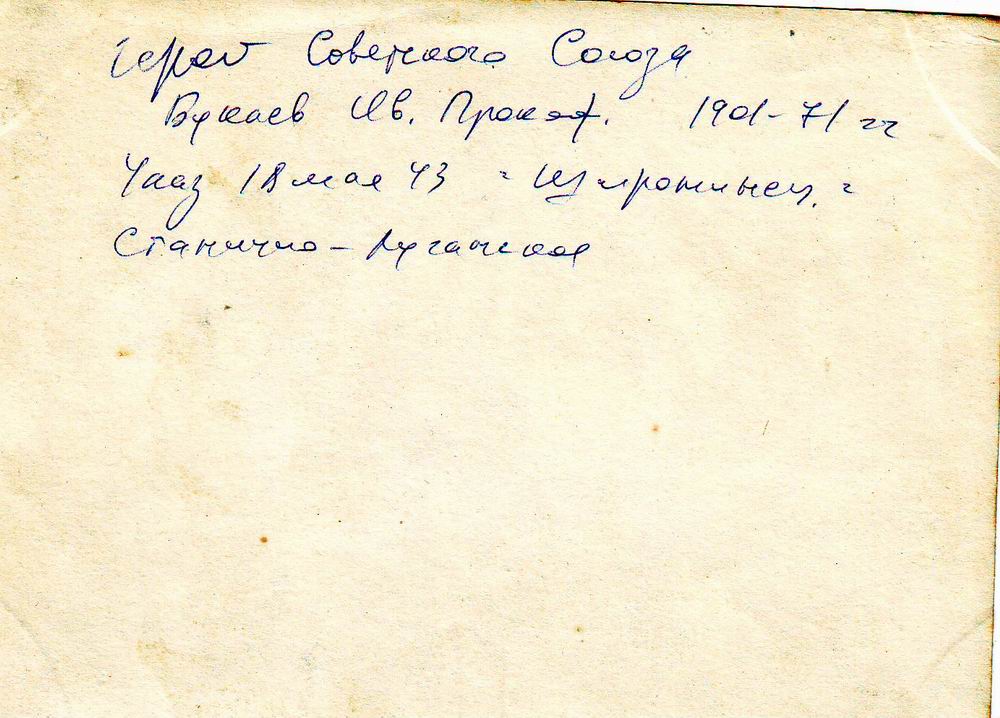 Герой Советского Союза
Букаев Ив. Прокоф. 1901-71 гг
Указ 18 мая 43
Станично-Луганское